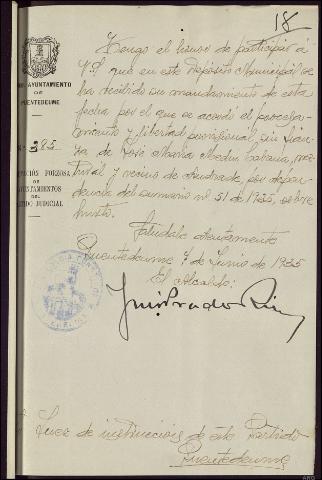 18
AYUNTAMIENTO
DE
PUENTEDEUME
Nº 385
FORZOSA
DE
AYUNTAMIENTOS
DEL
PARTIDO JUDICIAL
Tengo el honor de participar á
V.S. que en este Depósito Municipal se
ha recibido su mandamiento de esta
fecha por el que se acordó el procesa-
miento y libertad provisional, sin fian-
za, de José María
y vecino de Andrade, por
dencia del sumario nº 51 de 1935, sobre
hurto.
Salúdale atentamente
Puentedeume 7 de Junio de 1935
El Alcalde:
Juez de instrucción de este Partido
Puentedeume